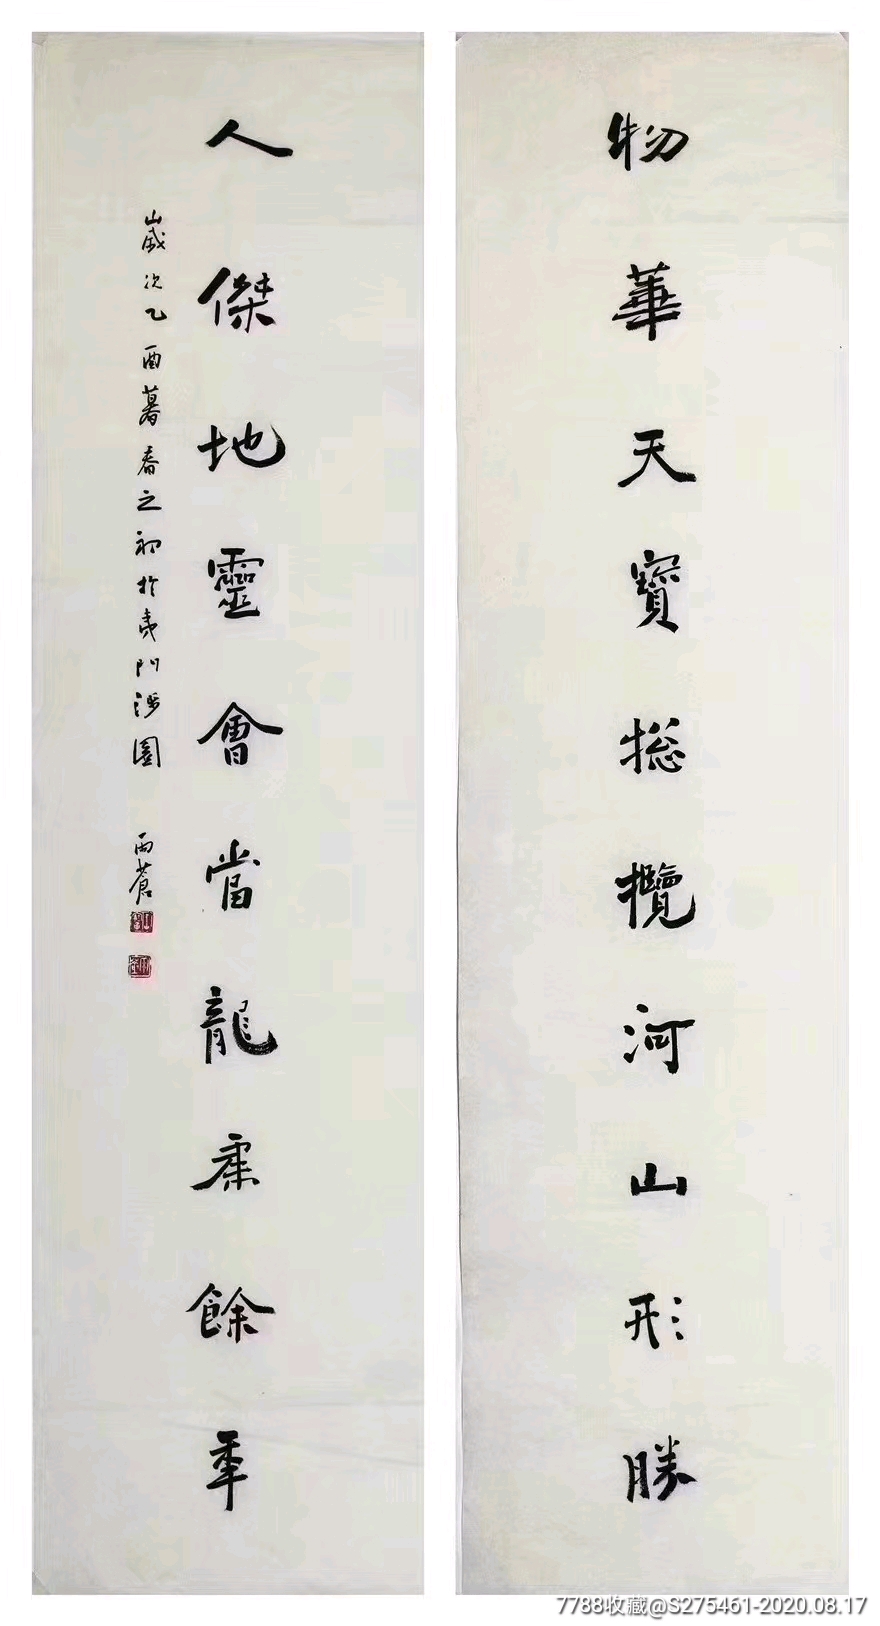 物華天寶總攬河山形勝
人傑地靈會當龍康餘年
歲次乙酉暮春之初於夷門涉園
雨蒼
7788收藏@S275461-2020.08.17